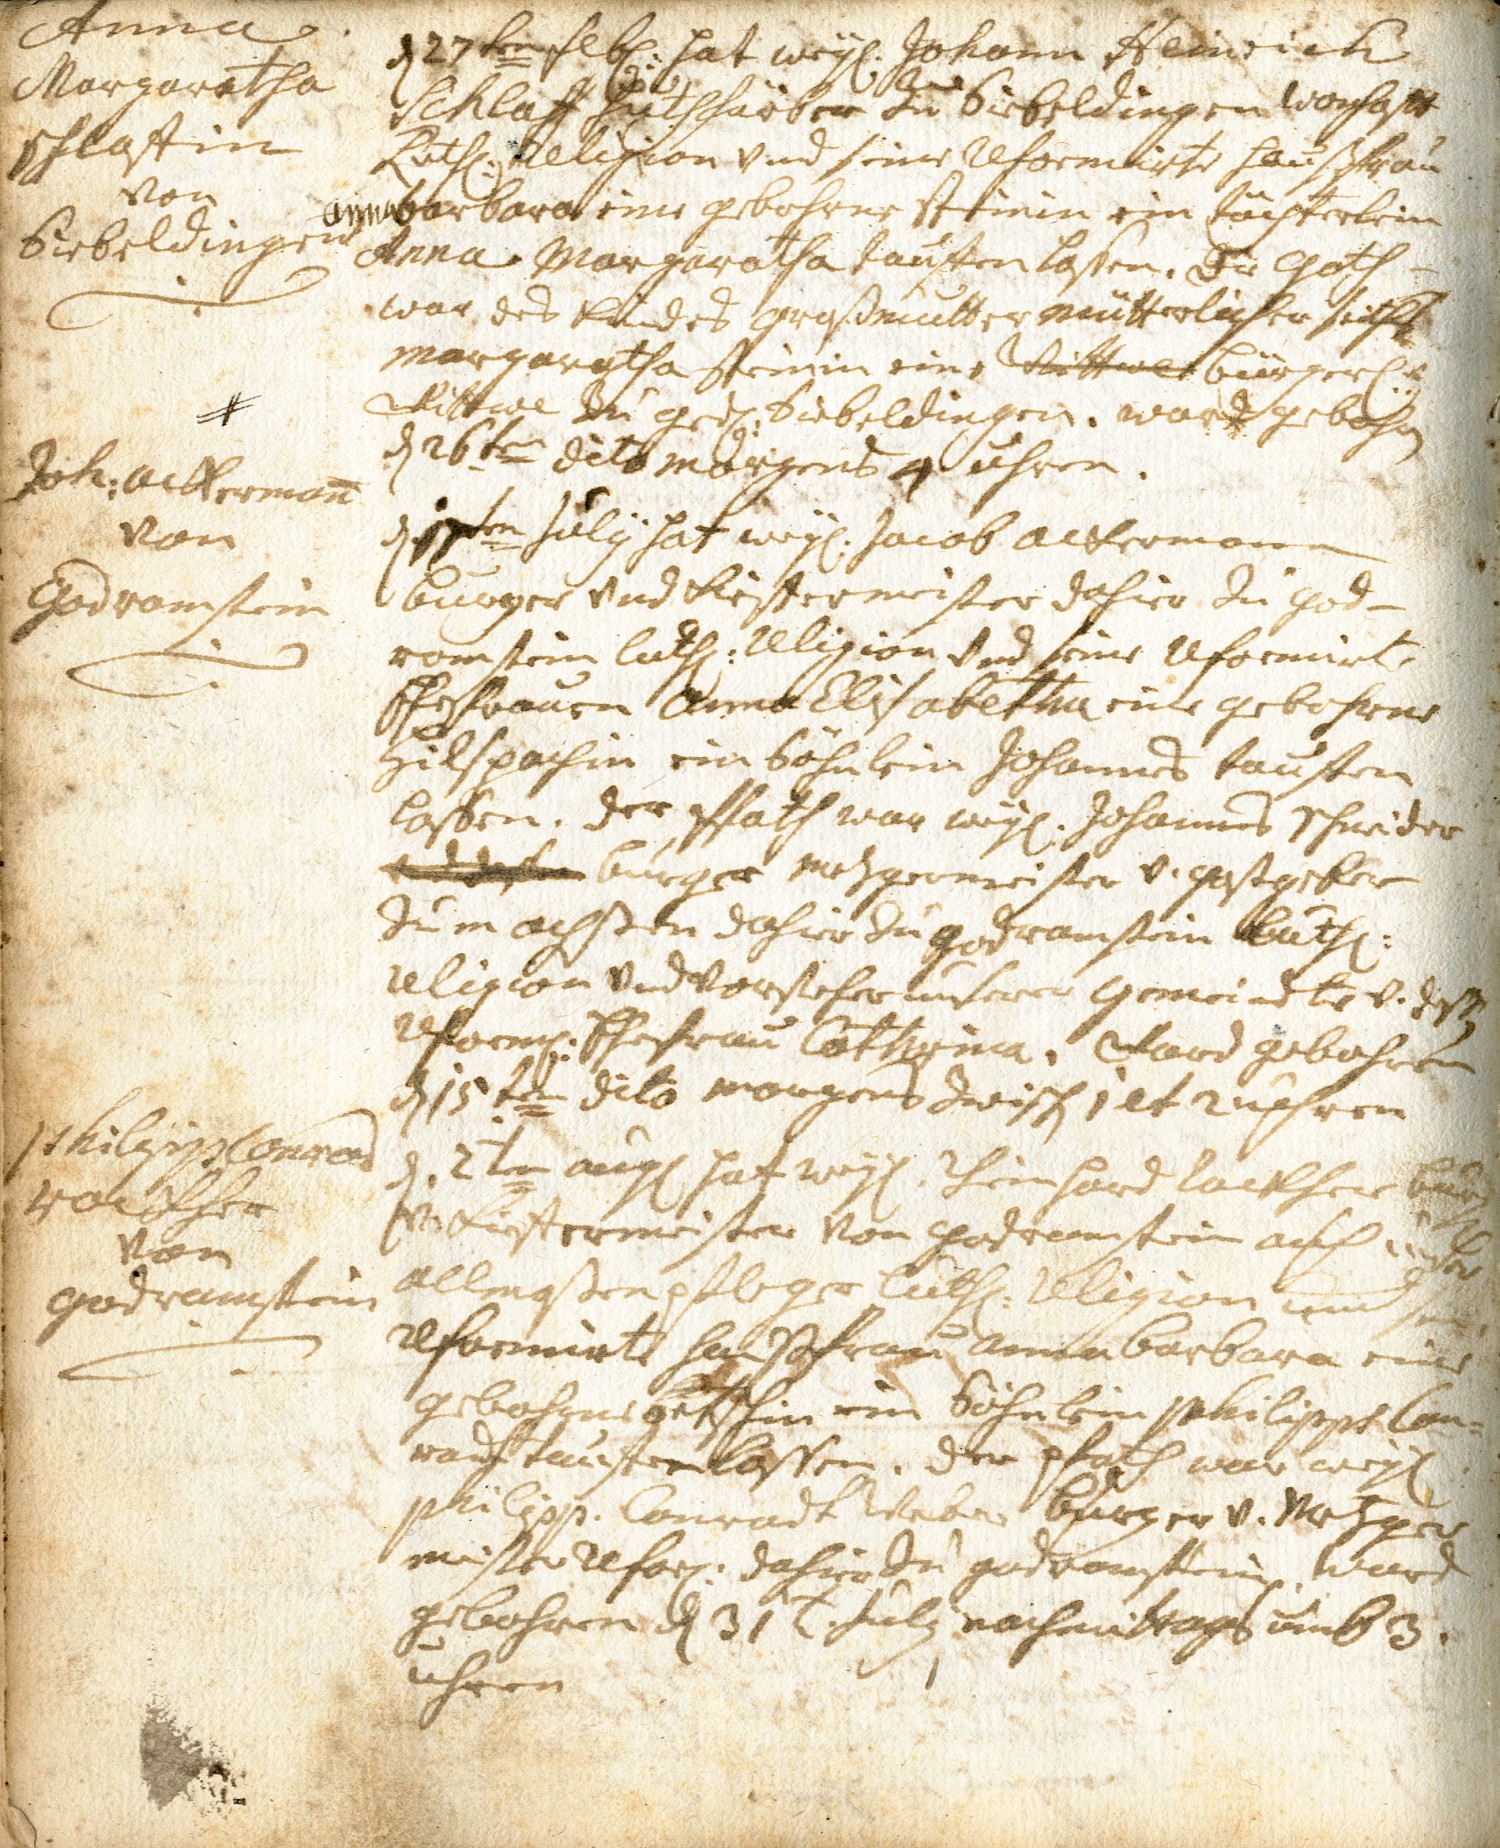 Anna
Margaretha
Schlaffin
von
Siebeldingen
d 27ten hat Johann Heinrich
Schlaff zu Siebeldingen wohnhafft
Luth: Religion und seine Reformirte haußfrau
anna barbara eine gebohrne Steinin ein töchterlein
Anna Margaretha tauffen lassen. Die Goth
war des Kindes großmutter mütterlicher seiths
Margaretha Steinin eine Wittwe bürgerl:
Wittwe zu ged: Siebeldingen. ward gebohrn
d 26ten dito morgends 4 uhren.
#
Joh: Ackermañ
von
Godramstein
d 17ten July hat Jacob Ackermann
burger und Kieffermeister dahier zu God-
ramstein luth: Religion und seine Reformirte
Ehefrauen Anna Elisabetha eine gebohrne
Hilspachin ein Söhnlein Johannes tauffen
lassen. der Pfath war Johannes Schneider
burger Metzgermeister v. gastgeber
zum ochssen dahier zu Godramstein Luth:
Religion und Vorsteher unserer Gemeindte v. dessen
Reform: Ehefrau Catharina. Ward gebohren
d 15ten dito morgends zwisch 1 et 2 uhren
Philipp Conrad
von
godramstein
d. 2ten aug hat
v. Kieffermeister von godramstein auch
allmoßenpfleger Luth: Religion und
Reformirte haußfrau anna barbara eine
gebohrne ein Söhnlein Philipp Con-
radt tauffen lassen. der pfath war
Philipp. Conradt Weber burger v. Metzger
meister Refor: dahier zu godramstein. Ward
gebohren d 31t. July nachmitags umb 3.
uhren